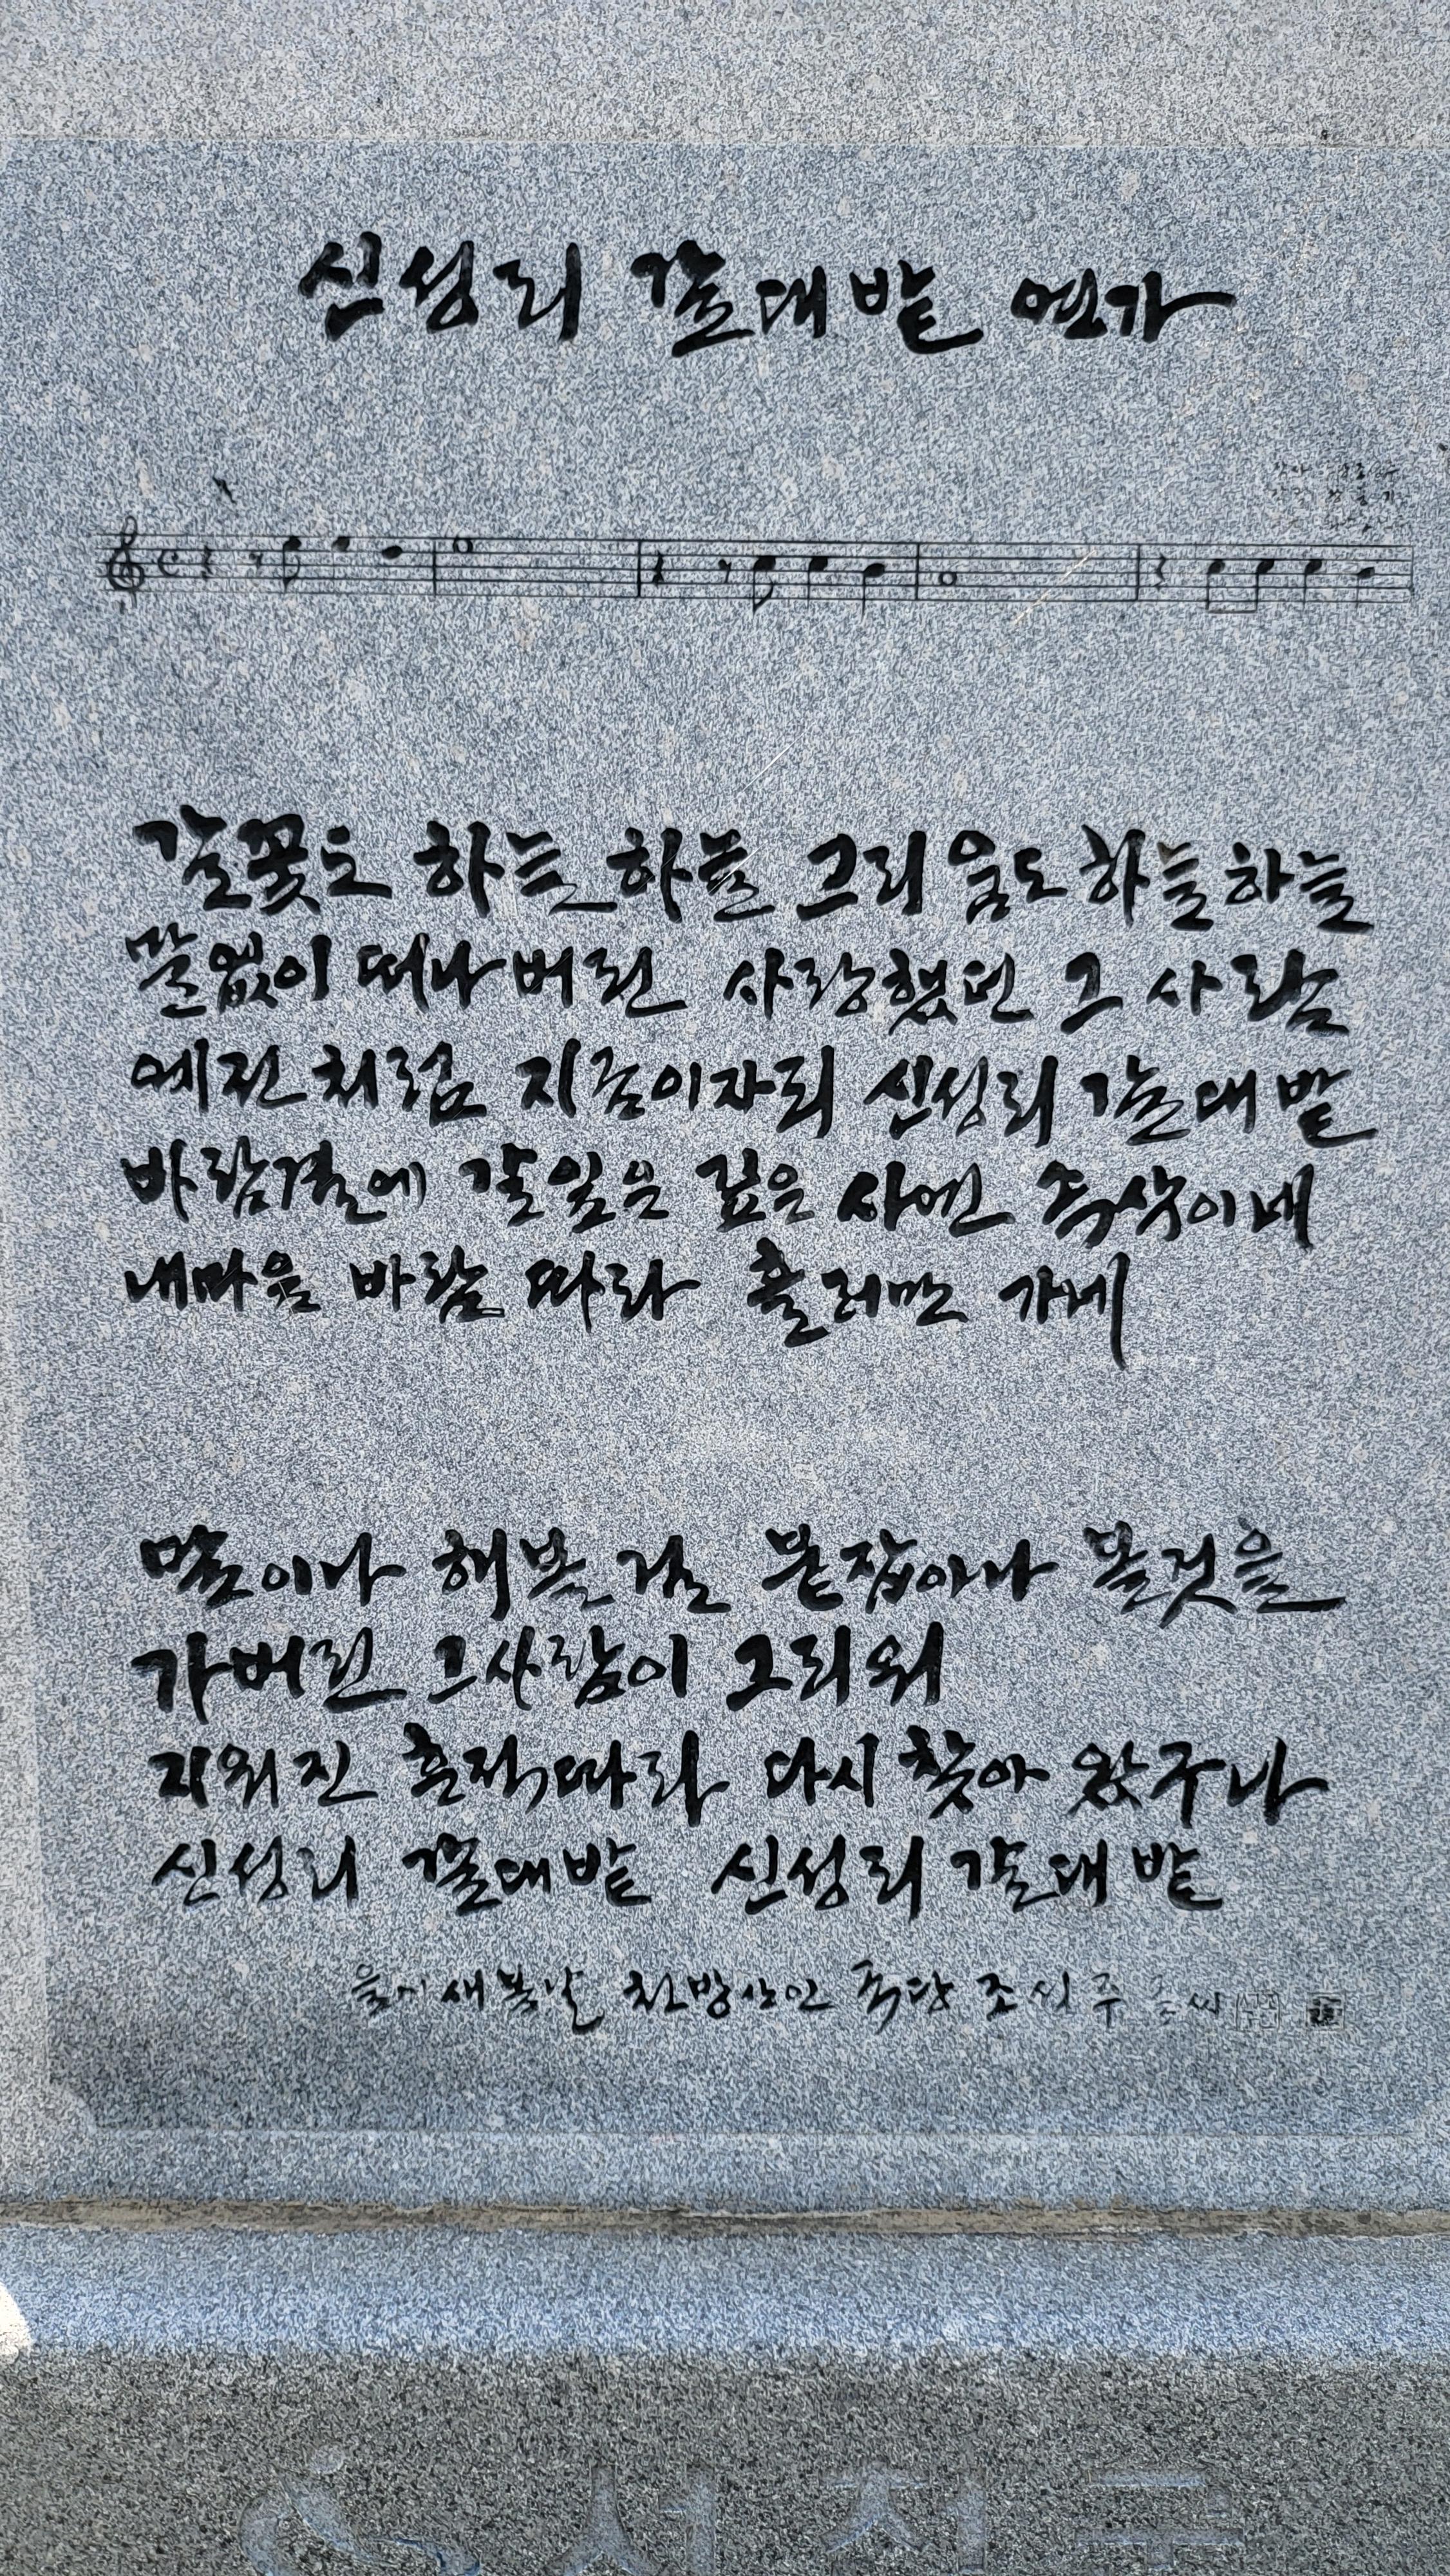 신성리 갈대밭 연가
갈꽃도 하늘하늘 그리움도 하늘하늘
말없이 떠나버린 사랑했던 그 사람
예전처럼 지금이자리 신성리 갈대밭
바람결에 갈잎은 깊은 사연 속삭이네
내마음 바람 따라 흘러만 가네
말이나 해볼걸 붙잡아나 볼것을
가버린 그사람이 그리워
지워진 흔적따라 다시 찾아 왔구나
신성리 갈대밭 신성리 갈대밭
새봄날 천방산인 죽당 조식주
서천군